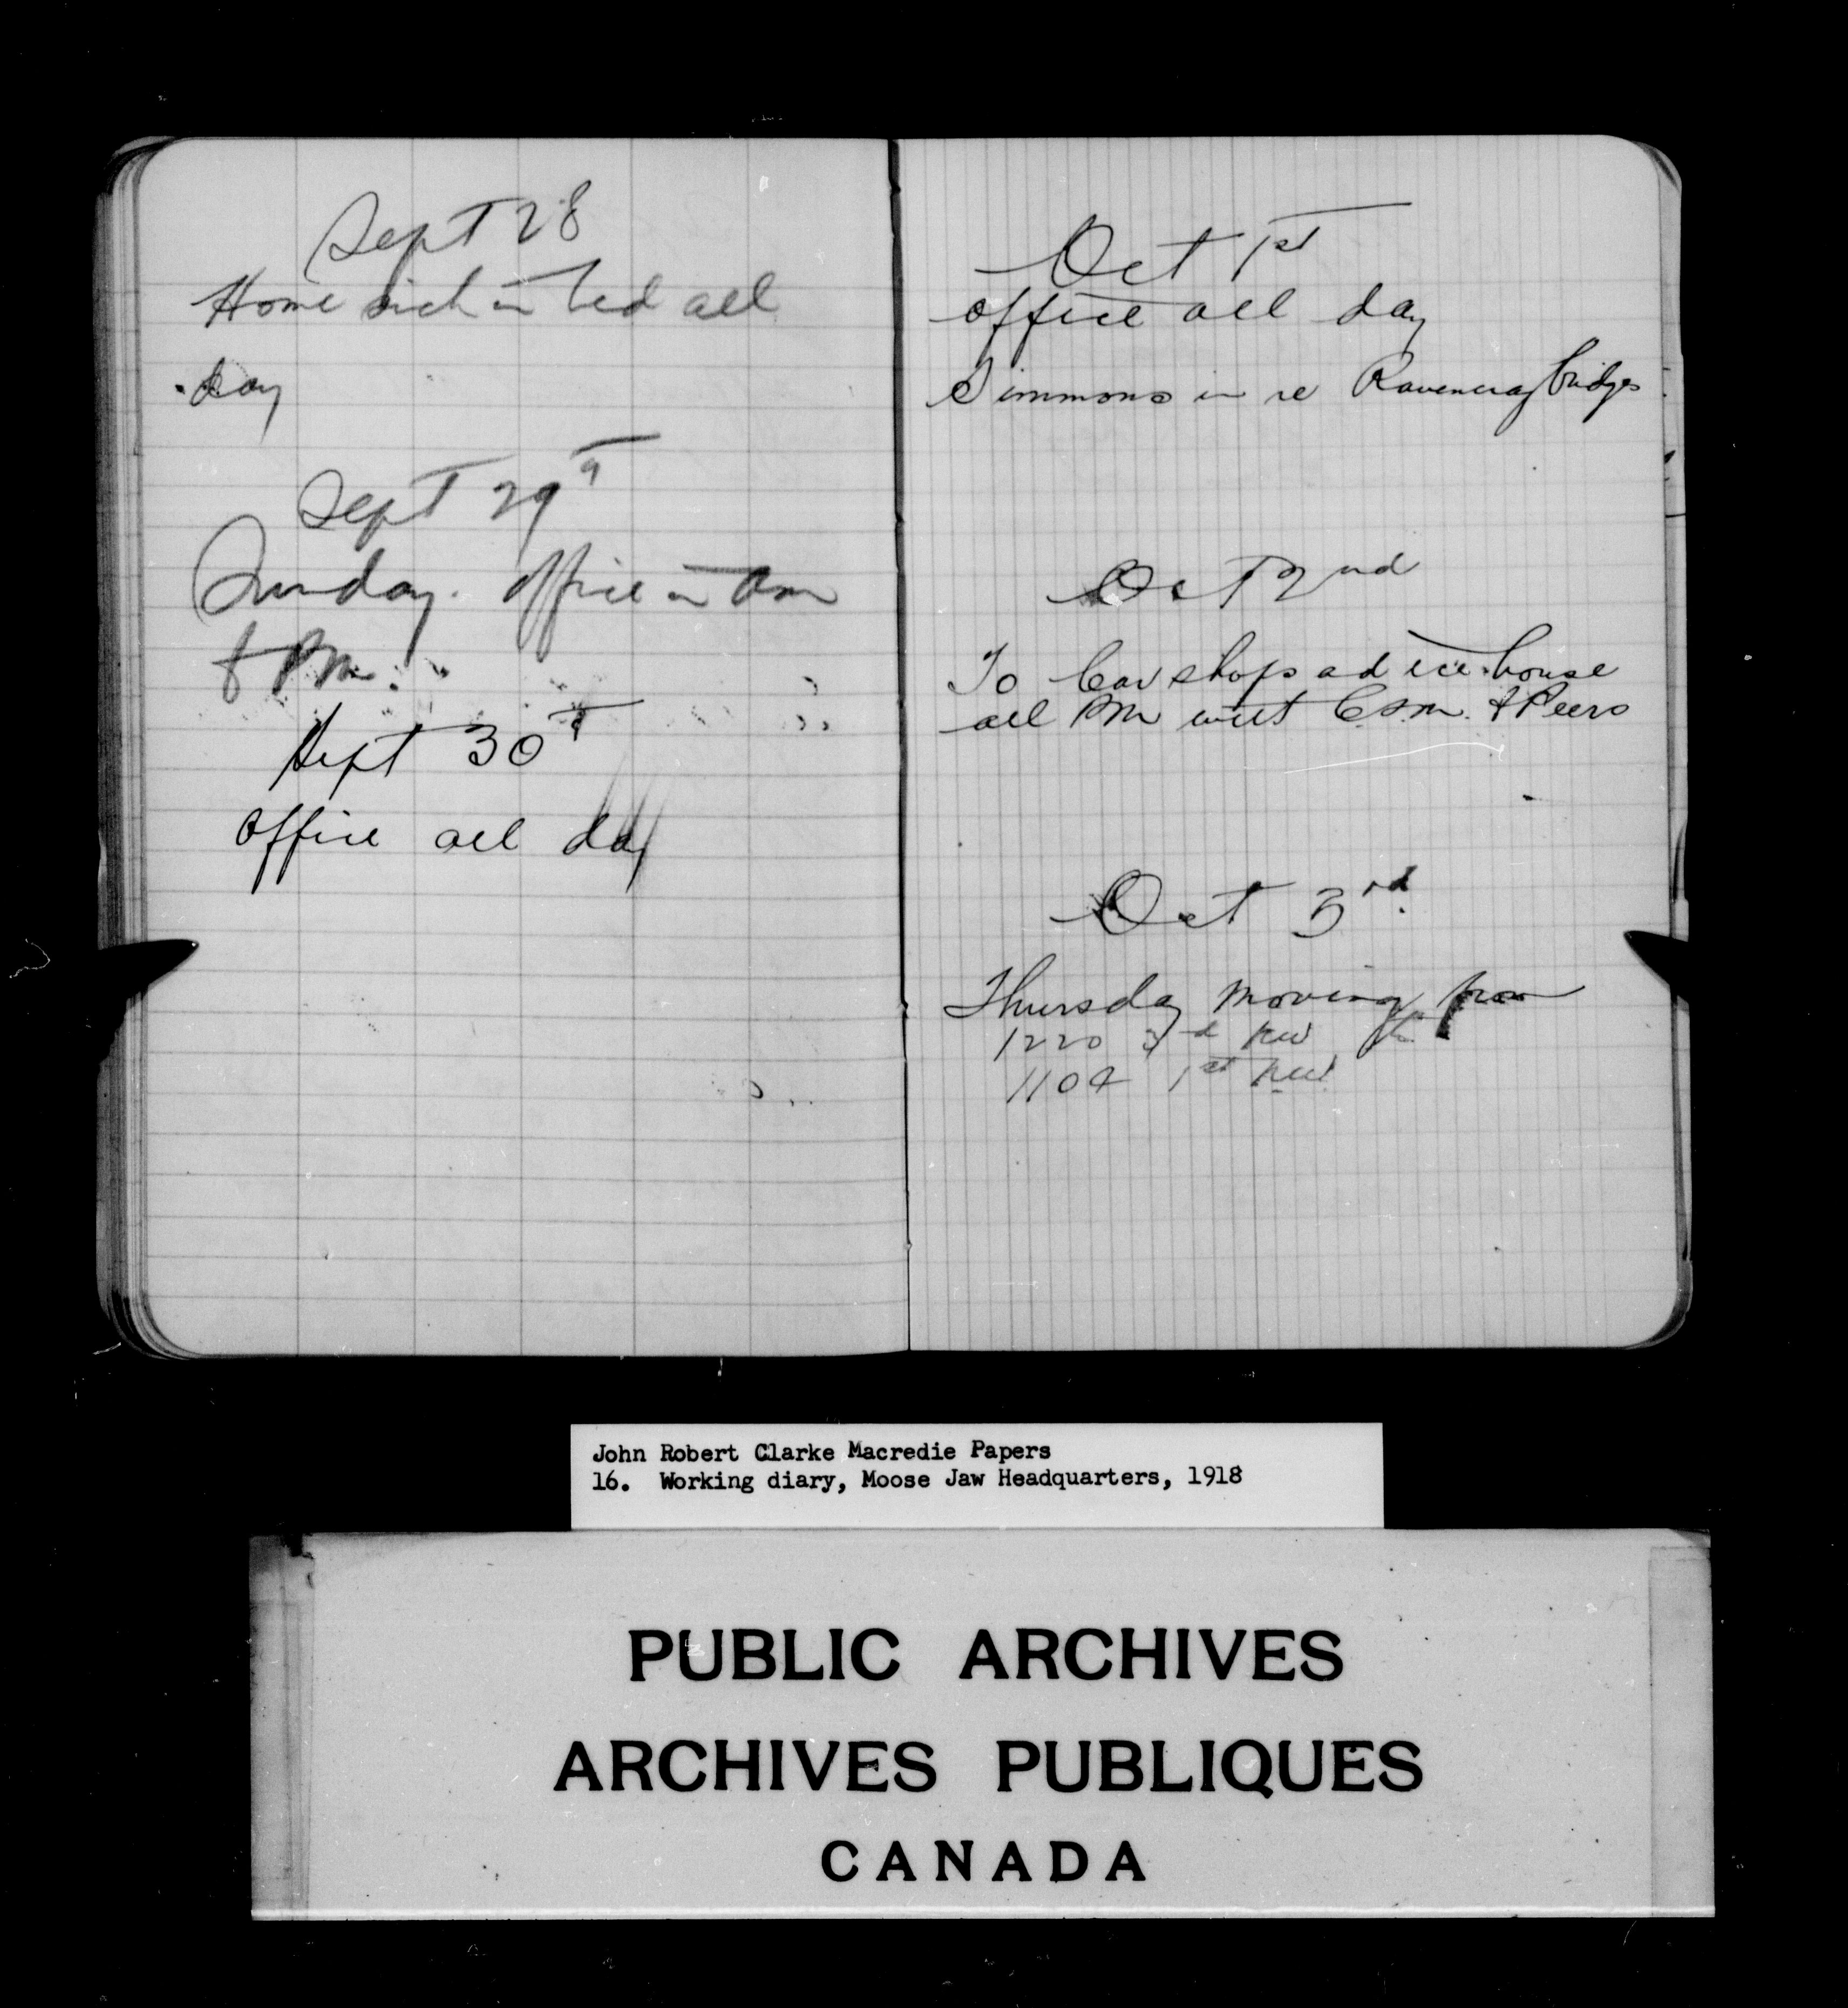 Sept 28
Home sick in bed all
day
Sept 29th
Sunday. office in am
& PM.
Sept 30th
Office all day
Oct 1st
office all day
Simmons in re Ravenscrag bridges
Oct 2nd
To Car shops and ice house
all PM with & Peers
Oct 3rd
Thursday moving from
1220 3rd NW to
1104 1st NW
John Robert Clarke Macredie Papers
16. Working diary, Moose Jaw Headquarters, 1918
PUBLIC ARCHIVES
ARCHIVES PUBLIQUES
CANADA